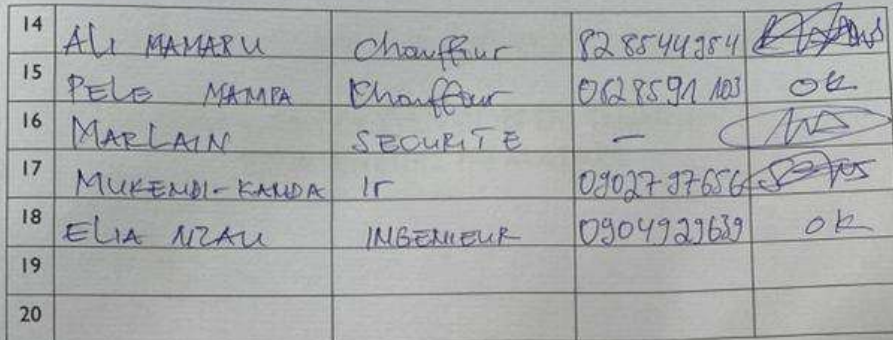 14 ALI MAMABU Chauffeur 828544984
15 PELE MAMPA Chauffeur 0828591103 OK
16 MARLAIN SECURITE —
17 MUKENDI-KANDA Ir 0902797656
18 ELIA NZAU INGENIEUR 0904929639 OK
19
20